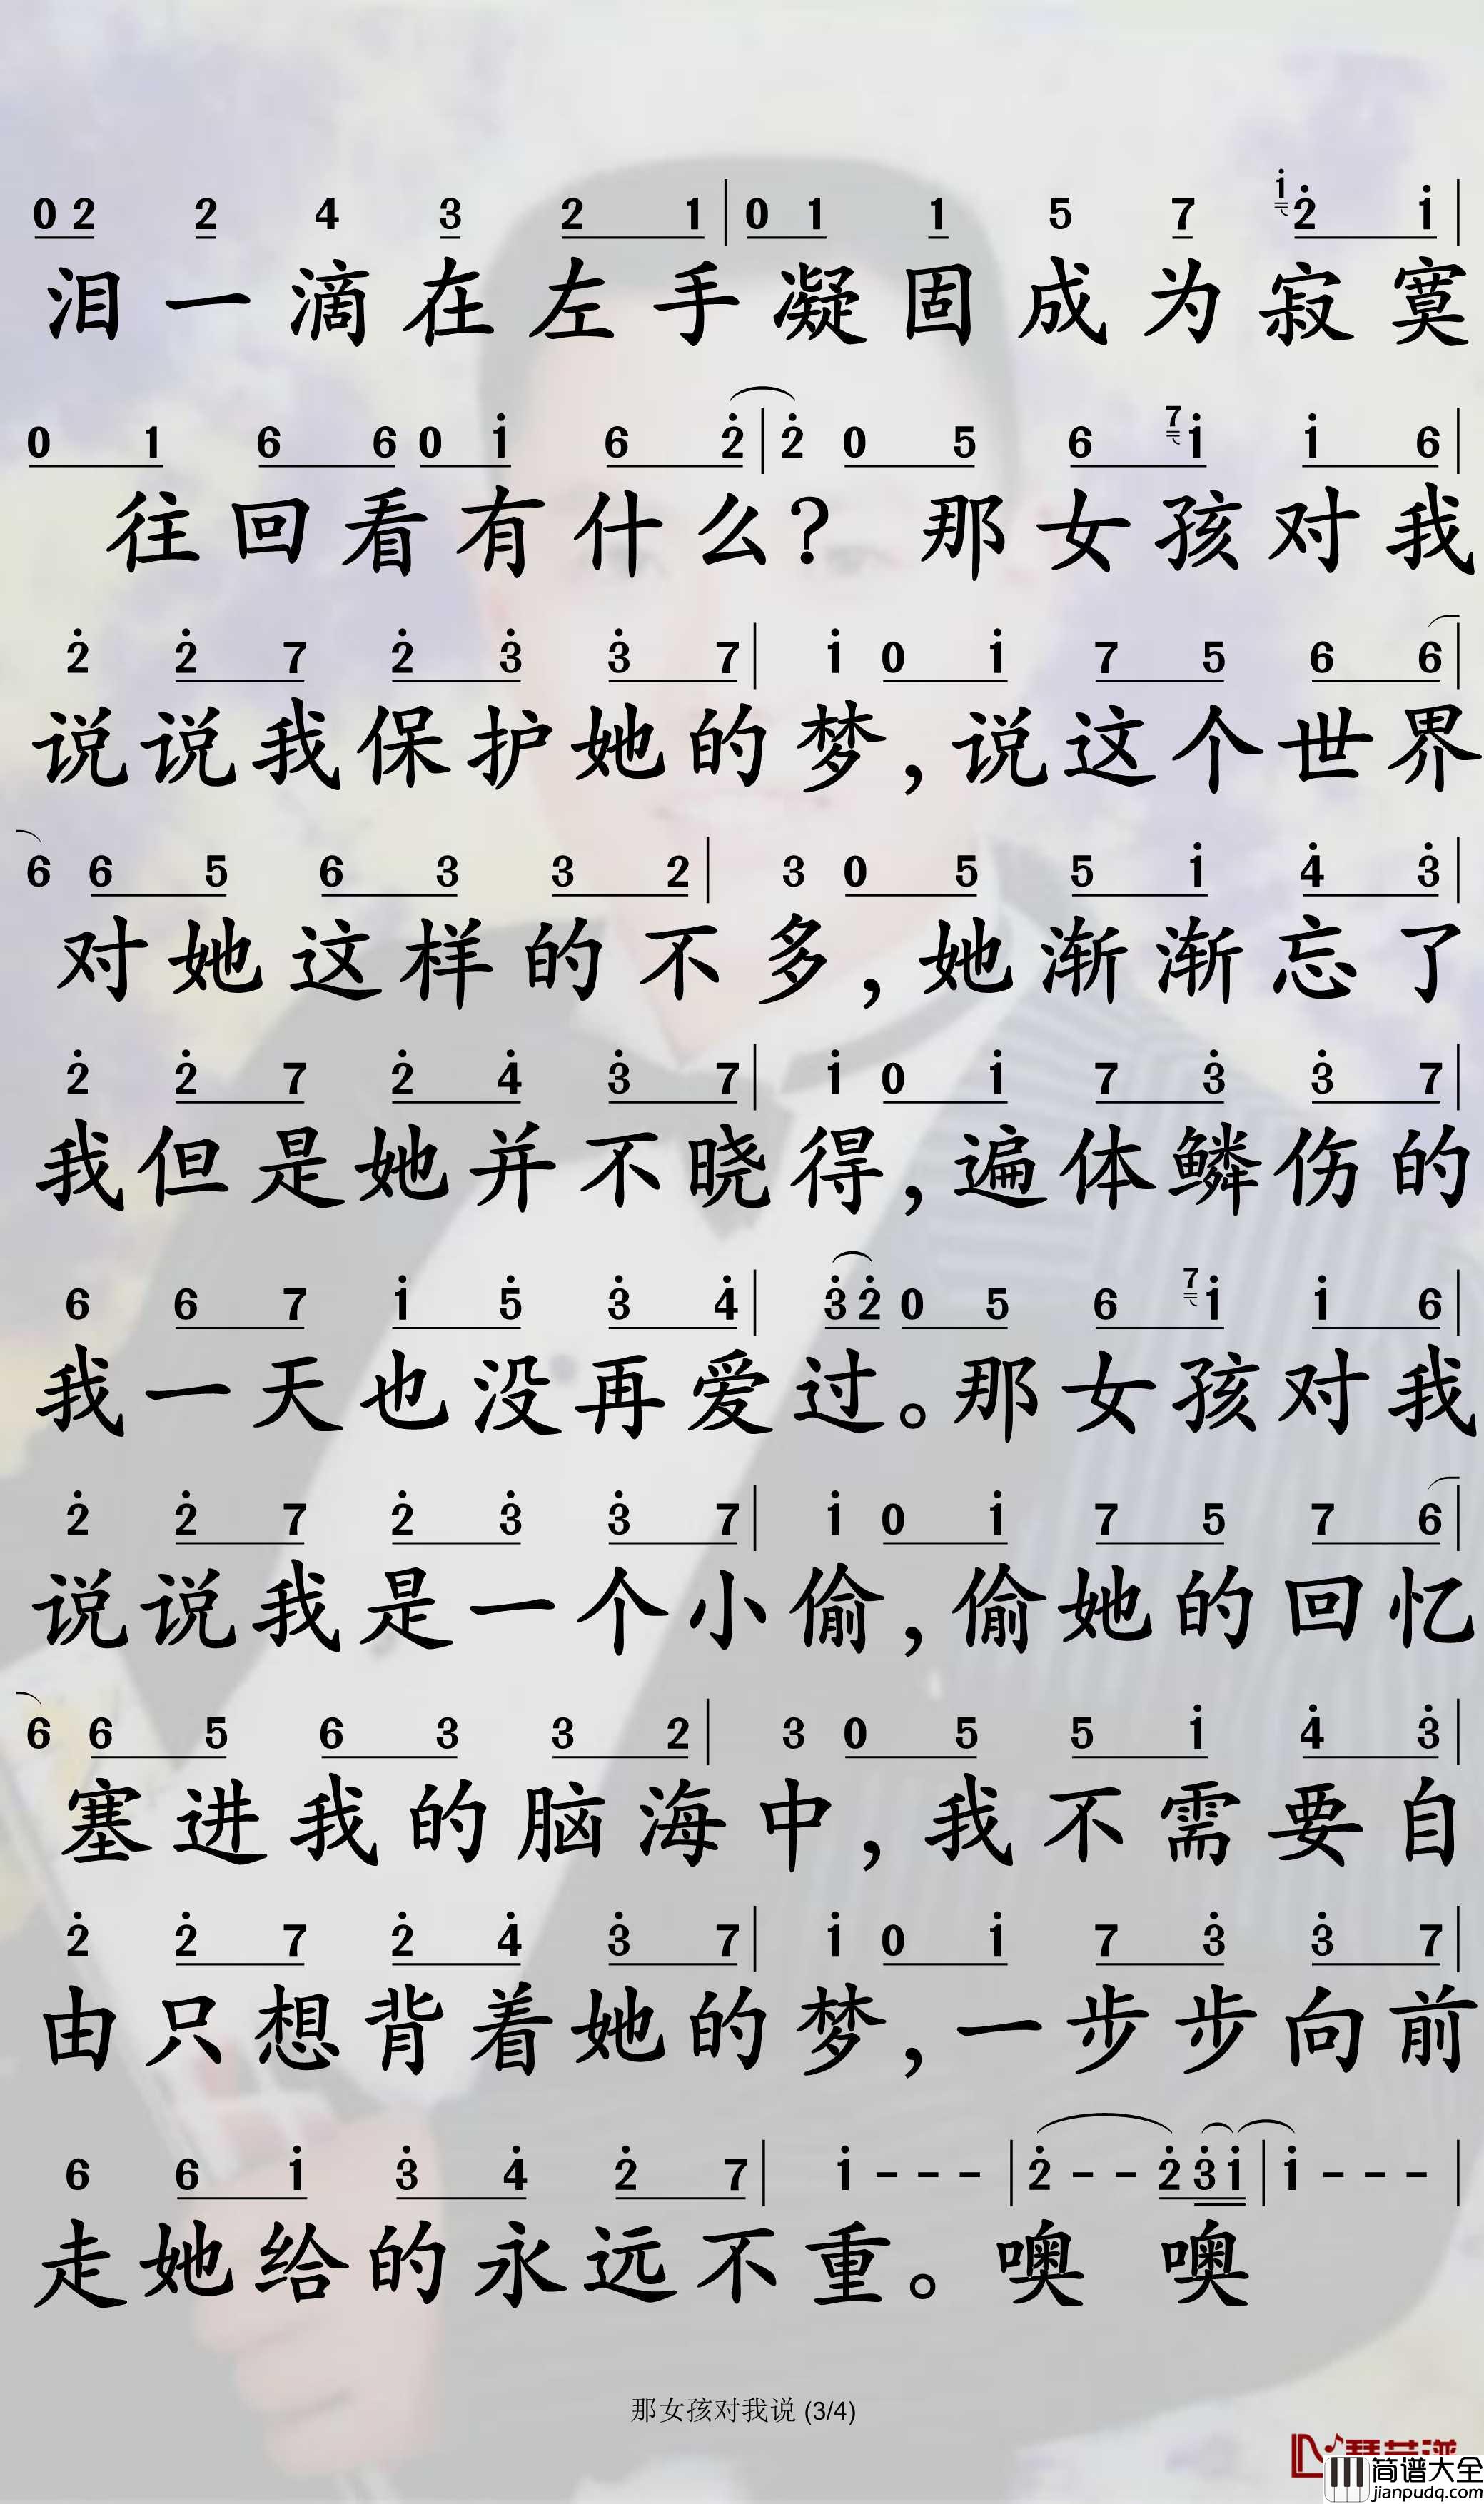 0 2 2 4 3 2 1 | 0 1 1 5 7 i 2̇ i |
泪一滴在左手凝固成为寂寞
0 1 6 6 0 i 6 2̇ | 2̇ 0 5 6 7 i i 6 |
往回看有什么? 那女孩对我
2̇ 2̇ 7 2̇ 3̇ 3̇ 7 | i 0 i 7 5 6 6 |
说说我保护她的梦,说这个世界
6 6 5 6 3 3 2 | 3 0 5 5 i 4̇ 3̇ |
对她这样的不多,她渐渐忘了
2̇ 2̇ 7 2̇ 4̇ 3̇ 7 | i 0 i 7 3̇ 3̇ 7 |
我但是她并不晓得,遍体鳞伤的
6 6 7 i 5̇ 3̇ 4̇ | 3̇ 2̇ 0 5 6 7 i i 6 |
我一天也没再爱过。那女孩对我
2̇ 2̇ 7 2̇ 3̇ 3̇ 7 | i 0 i 7 5 7 6 |
说说我是一个小偷,偷她的回忆
6 6 5 6 3 3 2 | 3 0 5 5 i 4̇ 3̇ |
塞进我的脑海中,我不需要自
2̇ 2̇ 7 2̇ 4̇ 3̇ 7 | i 0 i 7 3̇ 3̇ 7 |
由只想背着她的梦,一步步向前
6 6 i 3̇ 4̇ 2̇ 7 | i - - - | 2̇ - - 2̇ 3̇ i | i - - - |
走她给的永远不重。噢 噢
那女孩对我说 (3/4)
简谱大全
jianpudq.com